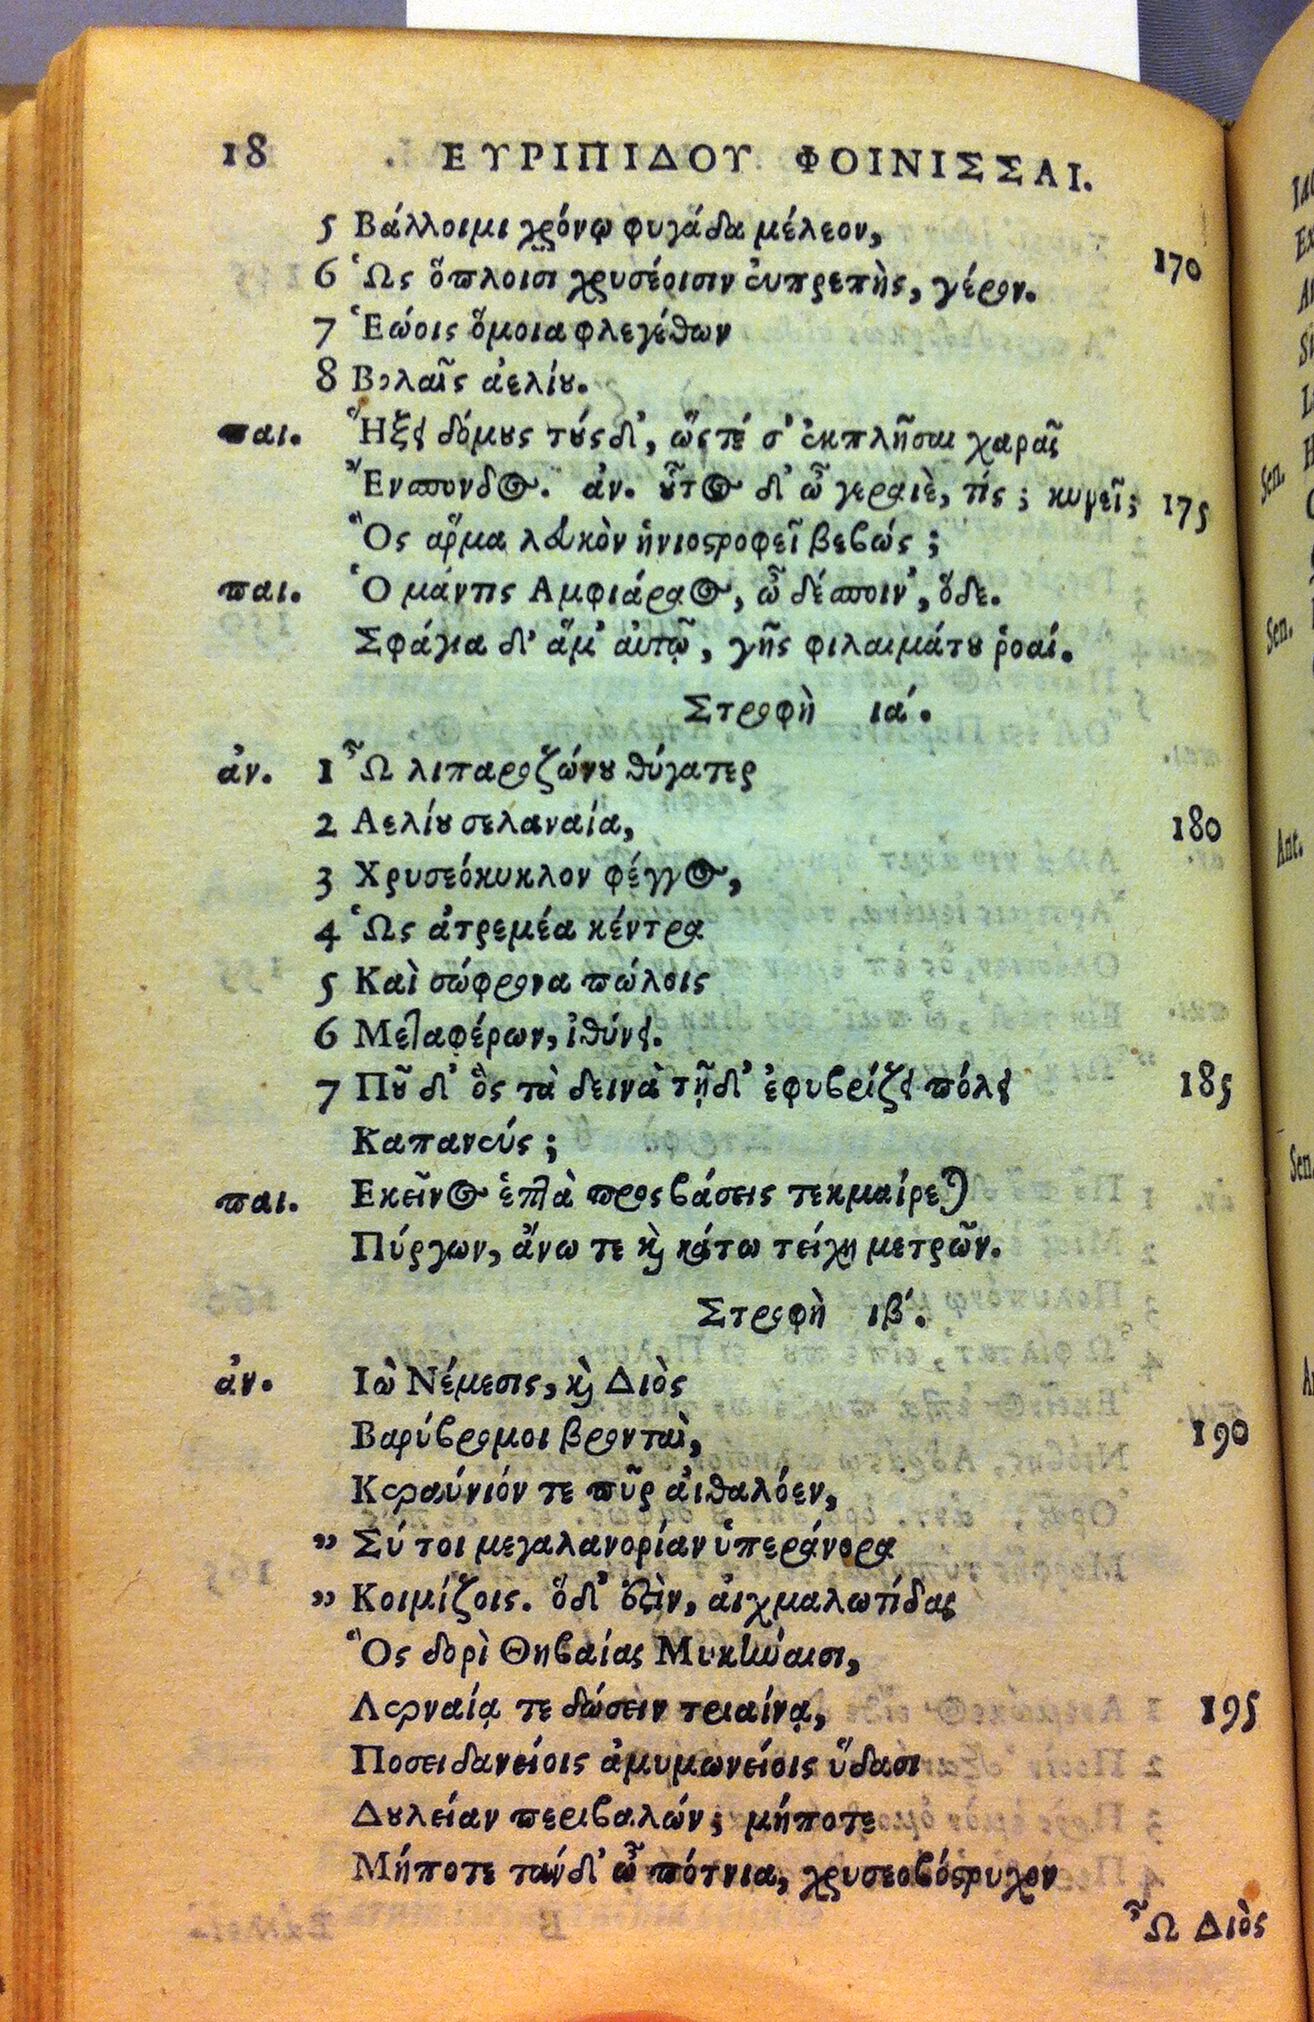 18 ΕΥΡΙΠΙΔΟΥ ΦΟΙΝΙΣΣΑΙ.
5 Βάλλοιμι χρόνῳ φυγάδα μέλεον,
6 Ὡς ὅπλοισι χρυσέοισιν εὐπρεπὴς, γέρον. 170
7 Ἑώοις ὅμοια φλεγέθων
8 Βολαῖς ἀελίου.
παι. Ἥξει δόμους τούςδ', ὥςτέ σ' ἐκπλῆσαι χαρᾶς
Ἔνσπονδος. ἀν. οὗτος δ' ὦ γεραιὲ, τίς; κυρεῖ; 175
Ὃς ἅρμα λευκὸν ἡνιοστροφεῖ βεβώς;
παι. Ὁ μάντις Αμφιάραος, ὦ δέσποιν', ὅδε.
Σφάγια δ' ἅμ' αὐτῷ, γῆς φιλαιμάτου ῥοαί.
Στροφὴ ια΄.
ἀν. 1 Ὦ λιπαροζώνου θύγατερ
2 Αελίου σελαναία, 180
3 Χρυσεόκυκλον φέγγος,
4 Ὡς ἀτρεμέα κέντρα
5 Καὶ σώφρονα πώλοις
6 Μεταφέρων, ἰθύνει.
7 Ποῦ δ' ὃς τὰ δεινὰ τῇδ' ἐφυβρίζει πόλει 185
Καπανεύς;
παι. Εκεῖνος ἑπτὰ προςβάσεις τεκμαίρεται
Πύργων, ἄνω τε καὶ κάτω τείχη μετρῶν.
Στροφὴ ιβ΄.
ἀν. Ιὼ Νέμεσις, καὶ Διὸς
Βαρύβρομοι βρονταὶ, 190
Κεραύνιόν τε πῦρ αἰθαλόεν,
» Σύ τοι μεγαλανορίαν ὑπεράνορα
» Κοιμίζοις. ὅδ' ἐστὶν, αἰχμαλωτίδας
Ὃς δορὶ Θηβαίας Μυκήναισι,
Λερναίᾳ τε δώσειν τριαίνᾳ, 195
Ποσειδανείοις ἀμυμωνείοις ὕδασι
Δουλείαν περιβαλών; μήποτε
Μήποτε τάνδ' ὦ πότνια, χρυσεοβόστρυχον
Ὦ Διὸς